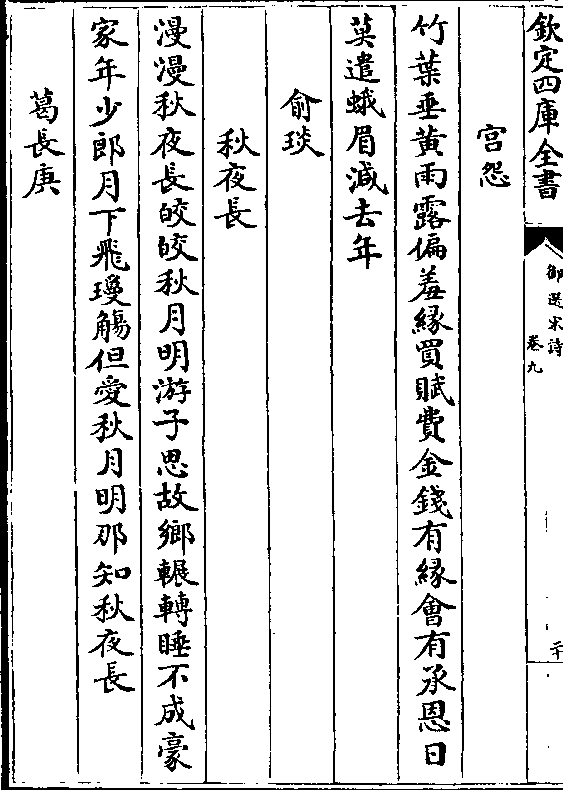 欽定四庫全書
御選宋詩
卷九
二十
宮怨
竹葉垂黄雨露偏羞縁買賦費金錢有縁會有承恩日
莫遣蛾眉減去年
俞琰
秋夜長
漫漫秋夜長皎皎秋月明游子思故鄉輾轉睡不成豪
家年少郎月下飛瓊觴但愛秋月明那知秋夜長
葛長庚